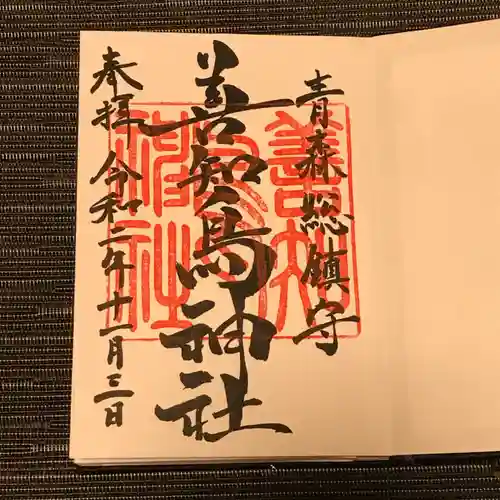 青森総鎮守
善知鳥神社
奉拝 令和二年十一月三日
善知鳥神社